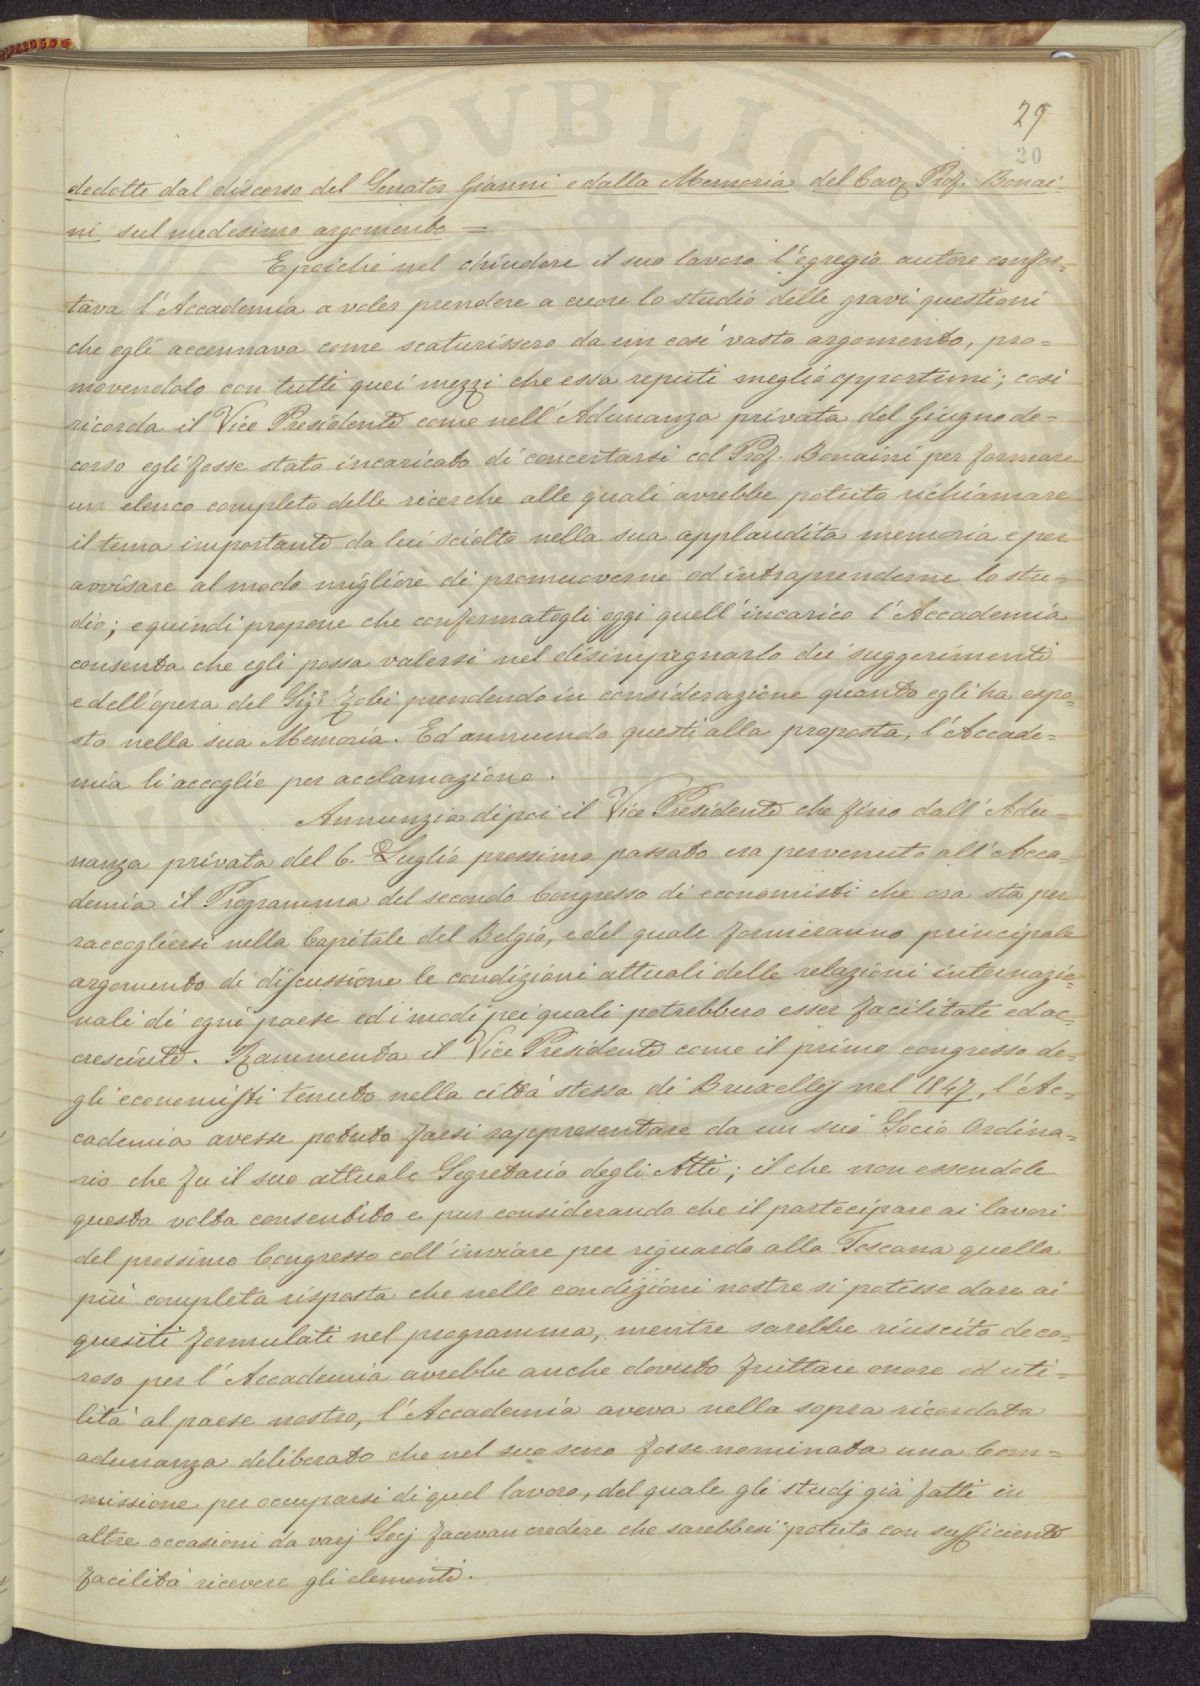 PVBLICA
29
30
dedotte dal discorso del Senator Gianni e dalla Memoria del Cav. Prof. Bonai-
ni sul medesimo argomento =
E poiché nel chiudere il suo lavoro l'egregio autore confor-
tava l'Accademia a voler prendere a cuore lo studio delle gravi questioni
che egli accennava come scaturissero da un così vasto argomento, pro=
movendolo con tutti quei mezzi che essa reputi meglio opportuni; così
ricorda il Vice Presidente come nell'Adunanza privata del Giugno de=
corso egli fosse stato incaricato di concertarsi col Prof. Bonaini per formare
un elenco completo delle ricerche alle quali avrebbe potuto richiamare
il tema importante da lui sciolto nella sua applaudita memoria e per
avvisare al modo migliore di promuoverne ed intraprenderne lo stu-
dio; e quindi propone che confermatogli oggi quell'incarico l'Accademia
consenta che egli possa valersi nel disimpegnarlo dei suggerimenti
e dell'opera del Sigr. Zobi prendendo in considerazione quanto egli ha espo-
sto nella sua Memoria. Ed annuendo questi alla proposta, l'Accade=
mia li accoglie per acclamazione.
Annunzia dipoi il Vice Presidente che fino dall'Adu-
nanza privata del 6. Luglio prossimo passato era pervenuto all'Acca-
demia il Programma del secondo Congresso di economisti che ora sta per
raccogliersi nella Capitale del Belgio, e del quale formeranno principale
argomento di discussione le condizioni attuali delle relazioni internazio-
nali di ogni paese ed i modi pei quali potrebbero esser facilitate ed ac-
cresciute. Rammenta il Vice Presidente come il primo congresso de-
gli economisti tenuto nella città stessa di Bruxelles nel 1847, l'Ac-
cademia avesse potuto farsi rappresentare da un suo Socio Ordina=
rio che fu il suo attuale Segretario degli Atti; il che non essendole
questa volta consentito e pur considerando che il partecipare ai lavori
del prossimo Congresso coll'inviare per riguardo alla Toscana quella
più completa risposta che nelle condizioni nostre si potesse dare ai
quesiti formulati nel programma, mentre sarebbe riuscito deco-
roso per l'Accademia avrebbe anche dovuto fruttare onore ed uti-
lità al paese nostro, l'Accademia aveva nella sopra ricordata
adunanza deliberato che nel suo seno fosse nominata una Com=
missione per occuparsi di quel lavoro, del quale gli studj già fatti in
altre occasioni da varj Socj facevan credere che sarebbesi potuto con sufficiente
facilità ricevere gli elementi.